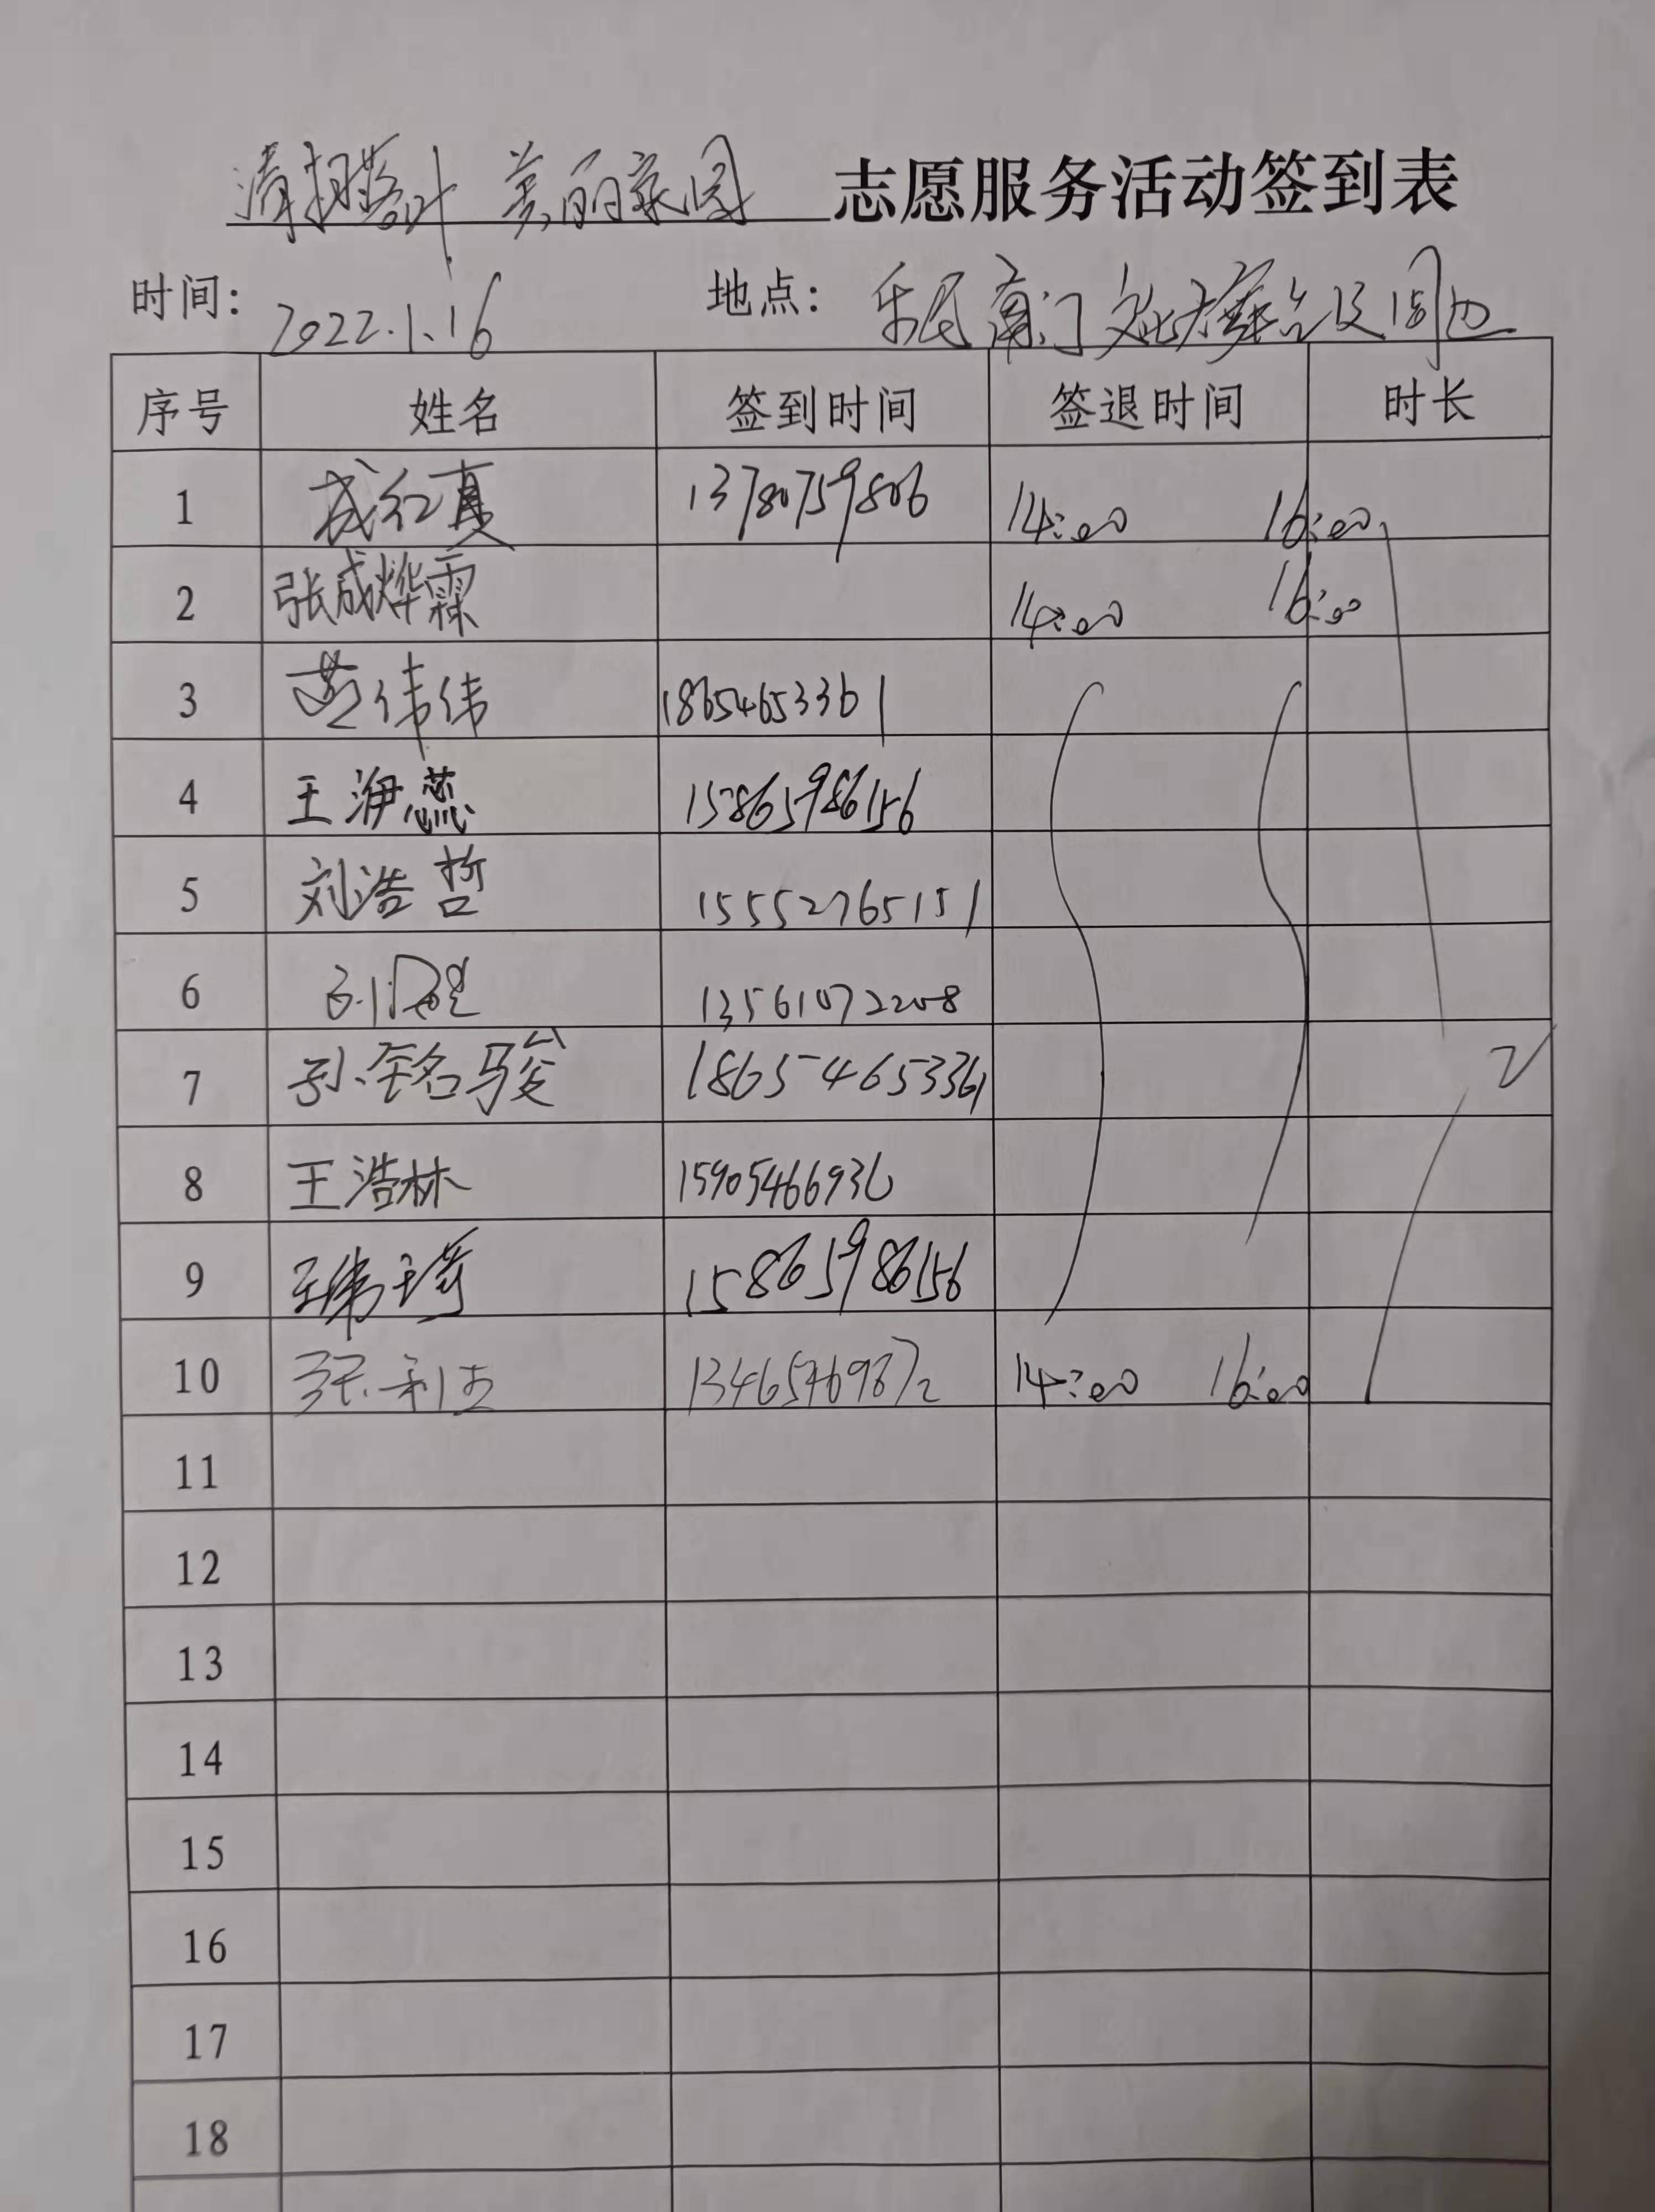 清扫落叶 美丽家园 志愿服务活动签到表
时间: 2022.1.16 地点: 乐民南门 及周边
序号 姓名 签到时间 签退时间 时长
1 成红真 13780759806 14:00 16:00
2 张成烨霖 14:00 16:00
3 伟伟 18654653361
4 王洢蕊 15865986156
5 刘浩哲 15552765151
6 13561072208
7 孙铭骏 18654653361 2
8 王浩林 15905466936
9 王玮琦 15865986156
10 张利杰 13465769872 14:00 16:00
11
12
13
14
15
16
17
18